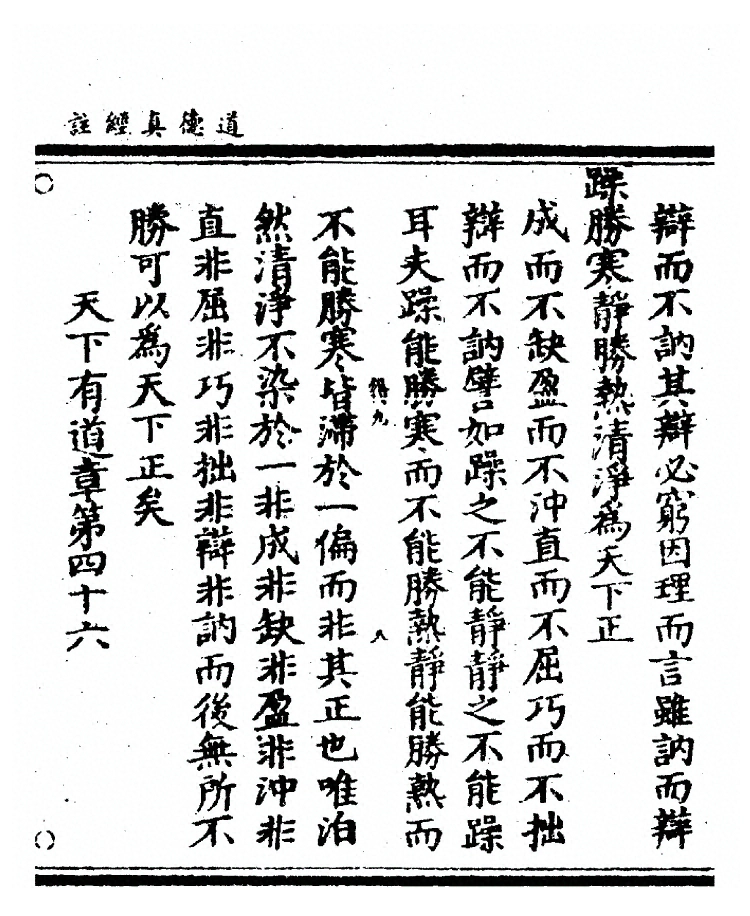 道德真經註
辯而不訥其辯必窮因理而言雖訥而辯
躁勝寒靜勝熱清淨為天下正
成而不缺盈而不沖直而不屈巧而不拙
辯而不訥譬如躁之不能靜靜之不能躁
耳夫躁能勝寒而不能勝熱靜能勝熱而
不能勝寒皆滯於一偏而非其正也唯泊
然清淨不染於一非成非缺非盈非沖非
直非屈非巧非拙非辯非訥而後無所不
勝可以為天下正矣
天下有道章第四十六
得九
八